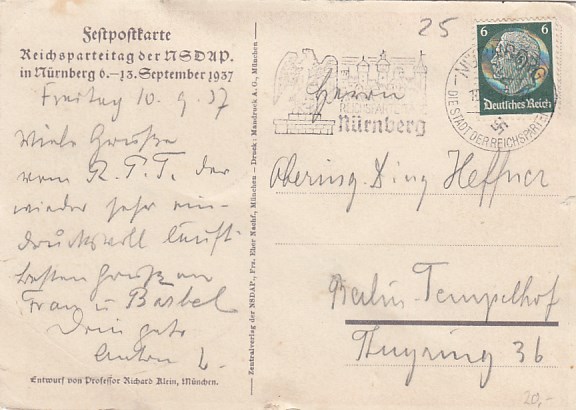 Festpostkarte
Reichsparteitag der NSDAP.
in Nürnberg 6.–13. September 1937
Freitag 10. 9. 37
Viele Grüße
vom R.P.T. der
wieder sehr ein-
drucksvoll läuft.
besten Gruß an
Frau u. Bärbel
Dein
Anton L.
Entwurf von Professor Richard Klein, München.
Zentralverlag der NSDAP., Frz. Eher Nachf., München – Druck: Mandruck A.G., München
25
Nürnberg
DIE STADT DER REICHSPARTEI
6 6
Deutsches Reich
Herrn
Obering. Ding Heffner
Berlin-Tempelhof
Thuyring 36
20,-